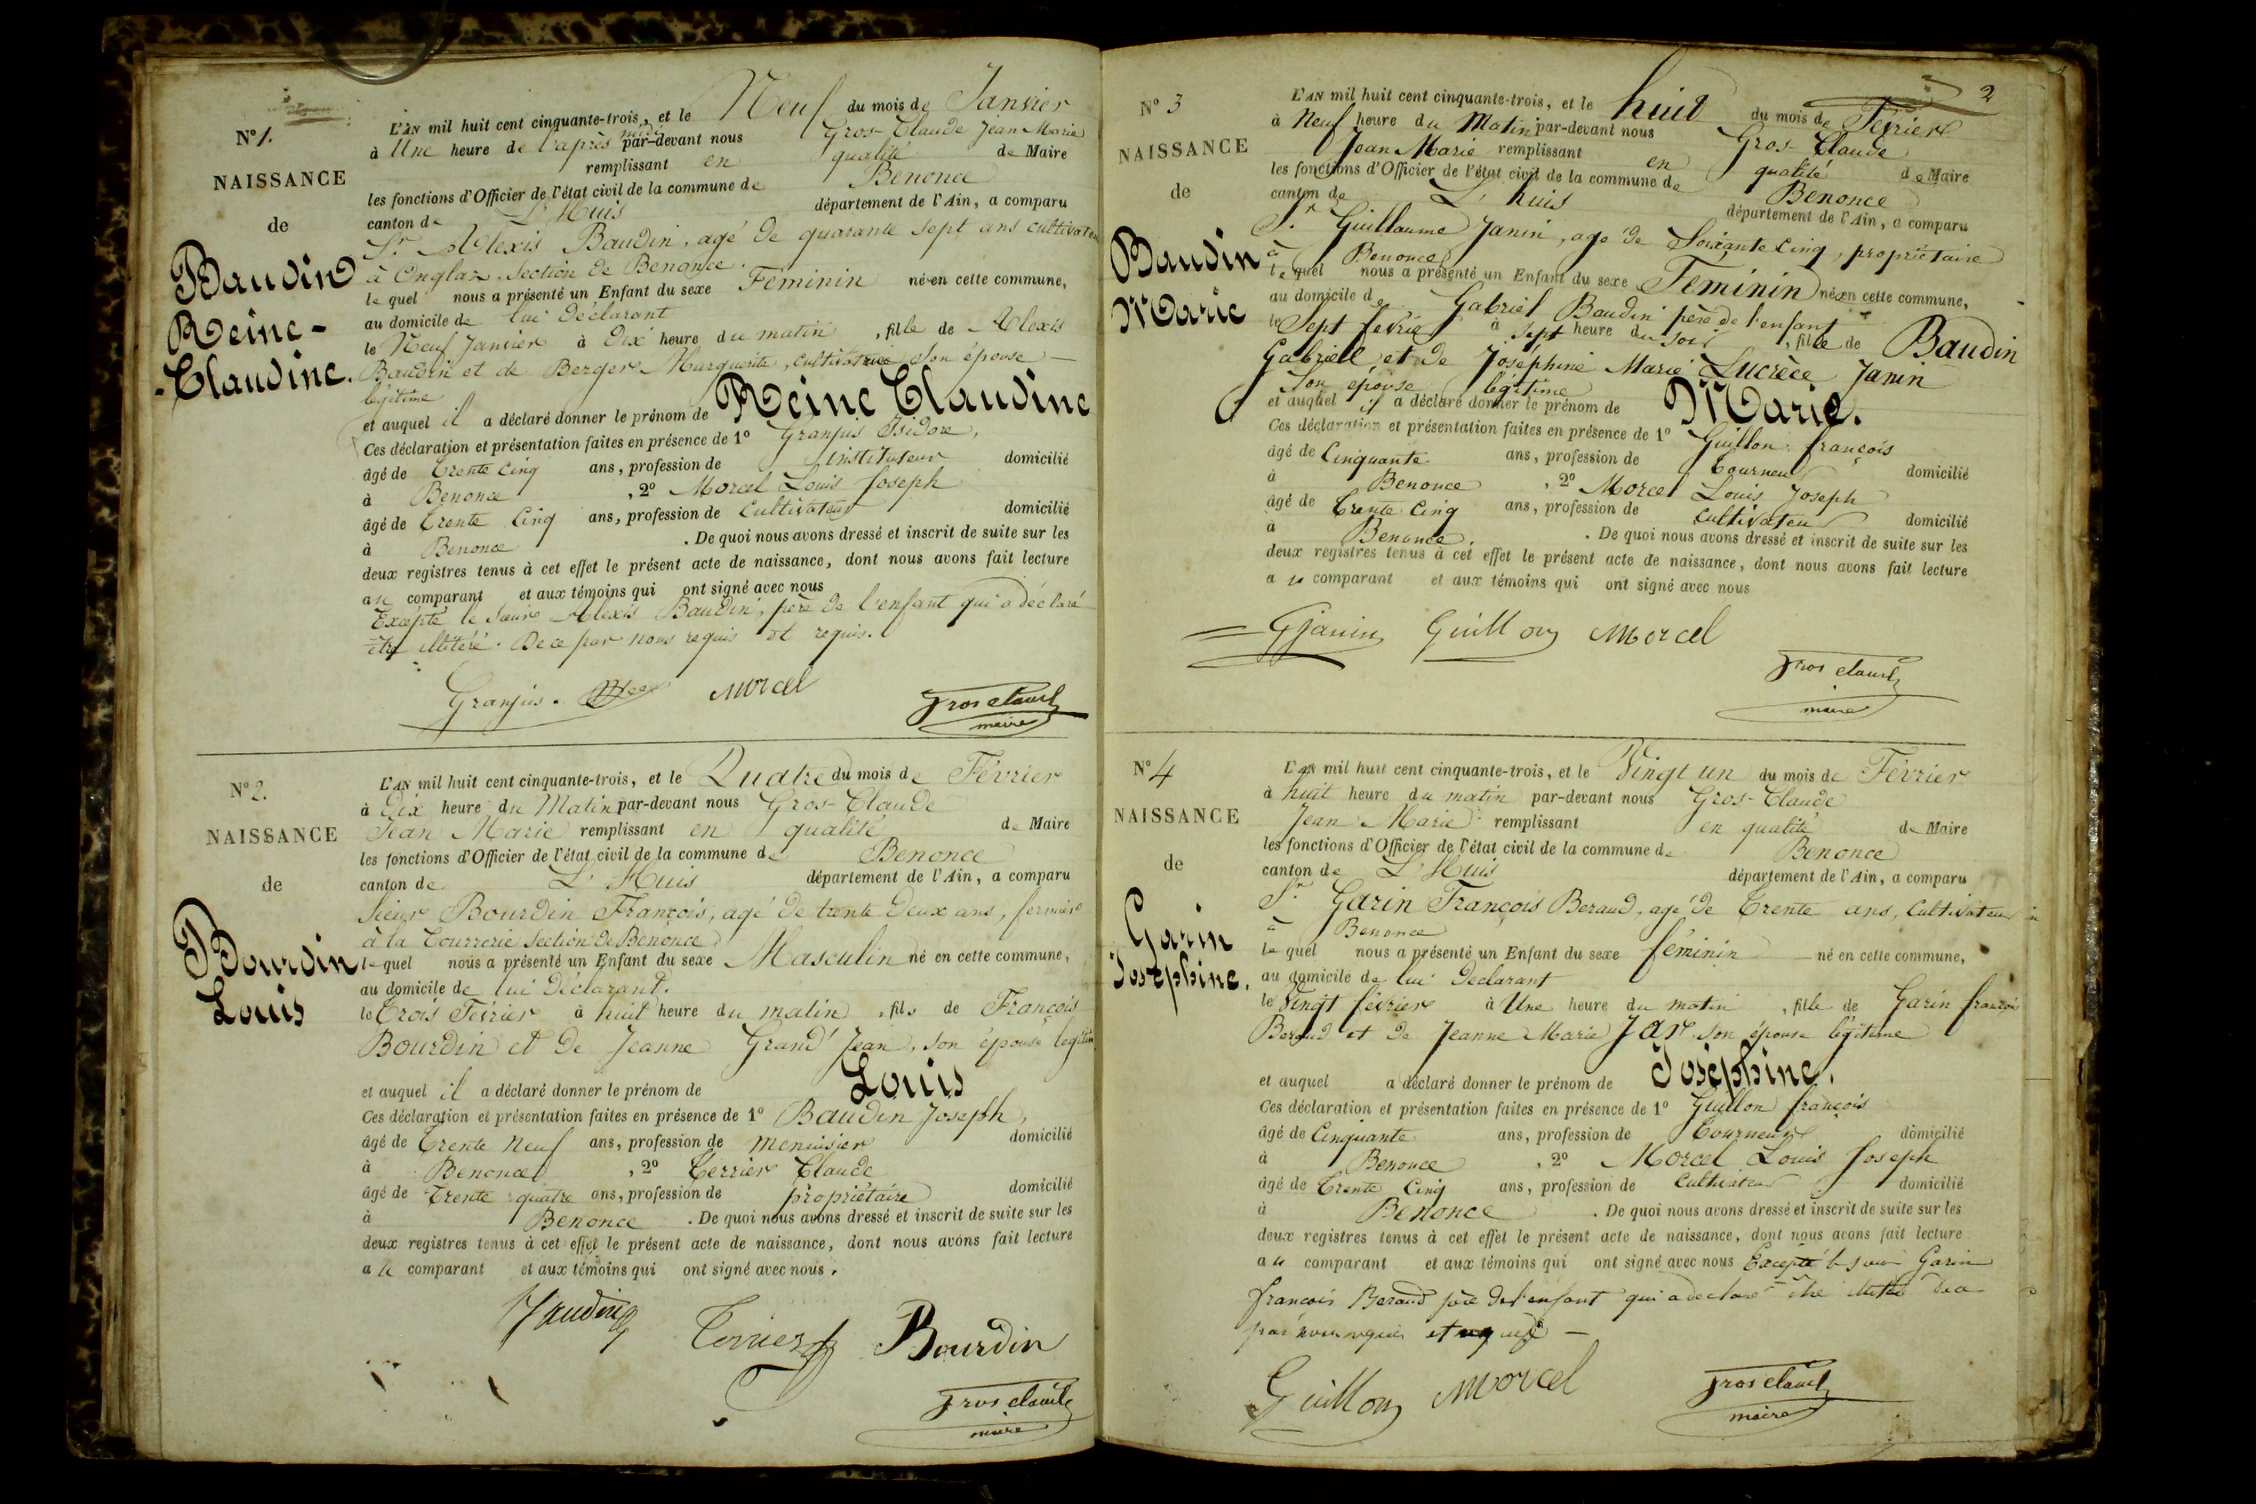 N° 1.
NAISSANCE
de
Baudin
Reine-
Claudine.
L'AN mil huit cent cinquante-trois, et le Neuf du mois de Janvier
à Une heure de l'après midi par-devant nous Gros-Claude Jean Marie
remplissant en qualité de Maire
les fonctions d'Officier de l'état civil de la commune de Benonce
canton de L'Huis département de l'Ain, a comparu
Sr. Alexis Baudin, agé de quarante sept ans cultivateur
à Onglas, Section de Benonce.
lequel nous a présenté un Enfant du sexe Féminin né en cette commune,
au domicile de lui déclarant
le Neuf Janvier à Dix heure du matin, fille de Alexis
Baudin et de Berger Marguerite, cultivatrice son épouse
légitime
et auquel il a déclaré donner le prénom de Reine Claudine
Ces déclaration et présentation faites en présence de 1° Granjus Isidore,
âgé de trente cinq ans, profession de instituteur domicilié
à Benonce, 2° Morcel Louis Joseph
âgé de Trente Cinq ans, profession de Cultivateur domicilié
à Benonce. De quoi nous avons dressé et inscrit de suite sur les
deux registres tenus à cet effet le présent acte de naissance, dont nous avons fait lecture
au comparant et aux témoins qui ont signé avec nous
Excepté le sieur Alexis Baudin, père de l'enfant qui a déclaré
être illitéré. De ce par nous requis et requis.
Granjus. Morcel
Gros claude
maire
N° 2.
NAISSANCE
de
Bourdin
Louis
L'AN mil huit cent cinquante-trois, et le Quatre du mois de Février
à Dix heure du Matin par-devant nous Gros-Claude
Jean Marie remplissant en qualité de Maire
les fonctions d'Officier de l'état civil de la commune de Benonce
canton de L'Huis département de l'Ain, a comparu
Sieur Bourdin François, agé de trente deux ans, fermier
à la Courrerie Section de Benonce
lequel nous a présenté un Enfant du sexe Masculin né en cette commune,
au domicile de lui Déclarant.
le Trois Février à huit heure du matin, fils de François
Bourdin et de Jeanne Grand'Jean, son épouse légitime
et auquel il a déclaré donner le prénom de Louis
Ces déclaration et présentation faites en présence de 1° Baudin Joseph,
âgé de Trente Neuf ans, profession de menuisier domicilié
à Benonce, 2° Terrier Claude
âgé de Trente quatre ans, profession de propriétaire domicilié
à Benonce. De quoi nous avons dressé et inscrit de suite sur les
deux registres tenus à cet effet le présent acte de naissance, dont nous avons fait lecture
au comparant et aux témoins qui ont signé avec nous.
Baudin Terrier Bourdin
Gros claude
maire
2
N° 3
NAISSANCE
de
Baudin
Marie
L'AN mil huit cent cinquante-trois, et le huit du mois de Février
à Neuf heure du Matin par-devant nous Gros-Claude
Jean Marie remplissant en qualité de Maire
les fonctions d'Officier de l'état civil de la commune de Benonce
canton de L'huis département de l'Ain, a comparu
Sr. Guillaume Janin, age de Soixante Cinq, propriétaire
à Benonce
lequel nous a présenté un Enfant du sexe Féminin né en cette commune,
au domicile de Gabriel Baudin père de l'enfant
le Sept fevrier à Sept heure du Soir, fille de Baudin
Gabriel et de Joséphine Marie Lucrèce Janin
Son épouse légitime
et auquel il a déclaré donner le prénom de Marie.
Ces déclaration et présentation faites en présence de 1° Guillon françois
âgé de Cinquante ans, profession de Tourneur domicilié
à Benonce, 2° Morcel Louis Joseph
âgé de Trente Cinq ans, profession de cultivateur domicilié
à Benonce. De quoi nous avons dressé et inscrit de suite sur les
deux registres tenus à cet effet le présent acte de naissance, dont nous avons fait lecture
au comparant et aux témoins qui ont signé avec nous
GJanin Guillon Morcel
Gros claude
maire
N° 4
NAISSANCE
de
Garin
Joséphine.
L'AN mil huit cent cinquante-trois, et le Vingt un du mois de Février
à huit heure du matin par-devant nous Gros-Claude
Jean Marie remplissant en qualité de Maire
les fonctions d'Officier de l'état civil de la commune de Benonce
canton de L'Huis département de l'Ain, a comparu
Sr. Garin François Beraud, agé de Trente ans, Cultivateur
à Benonce
lequel nous a présenté un Enfant du sexe féminin né en cette commune,
au domicile de lui Declarant
le Vingt février à Une heure du matin, fille de Garin françois
Beraud et de Jeanne Marie Jar son épouse légitime
et auquel a déclaré donner le prénom de Joséphine.
Ces déclaration et présentation faites en présence de 1° Guillon françois
âgé de Cinquante ans, profession de Tourneur domicilié
à Benonce, 2° Morcel Louis Joseph
âgé de Trente Cinq ans, profession de Cultivateur domicilié
à Benonce. De quoi nous avons dressé et inscrit de suite sur les
deux registres tenus à cet effet le présent acte de naissance, dont nous avons fait lecture
au comparant et aux témoins qui ont signé avec nous Excepté le sieur Garin
françois Beraud père de l'enfant qui a declaré être illitéré De ce
par nous requis et requis
Guillon Morcel
Gros claude
maire